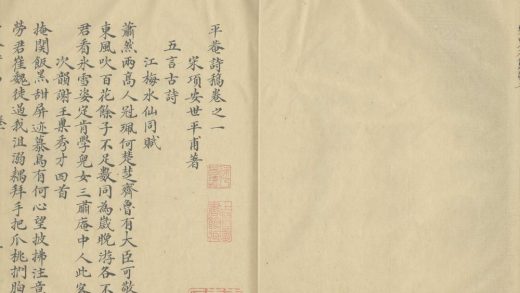 平菴詩稿卷之一
宋項安世平甫著
五言古詩
江梅水仙同賦
蕭然兩高人冠珮何楚楚齊魯有大臣可敬
東風吹百花餘子不足數同為歲晚游各不
君看氷雪姿定肯學兒女三肅菴中人此客
次韻謝王㮚秀才四首
掩関飯黑甜屏迹慕烏有何心望披拂注意
勞君崔巍徒過我沮溺耦拜手把瓜桃捫胸